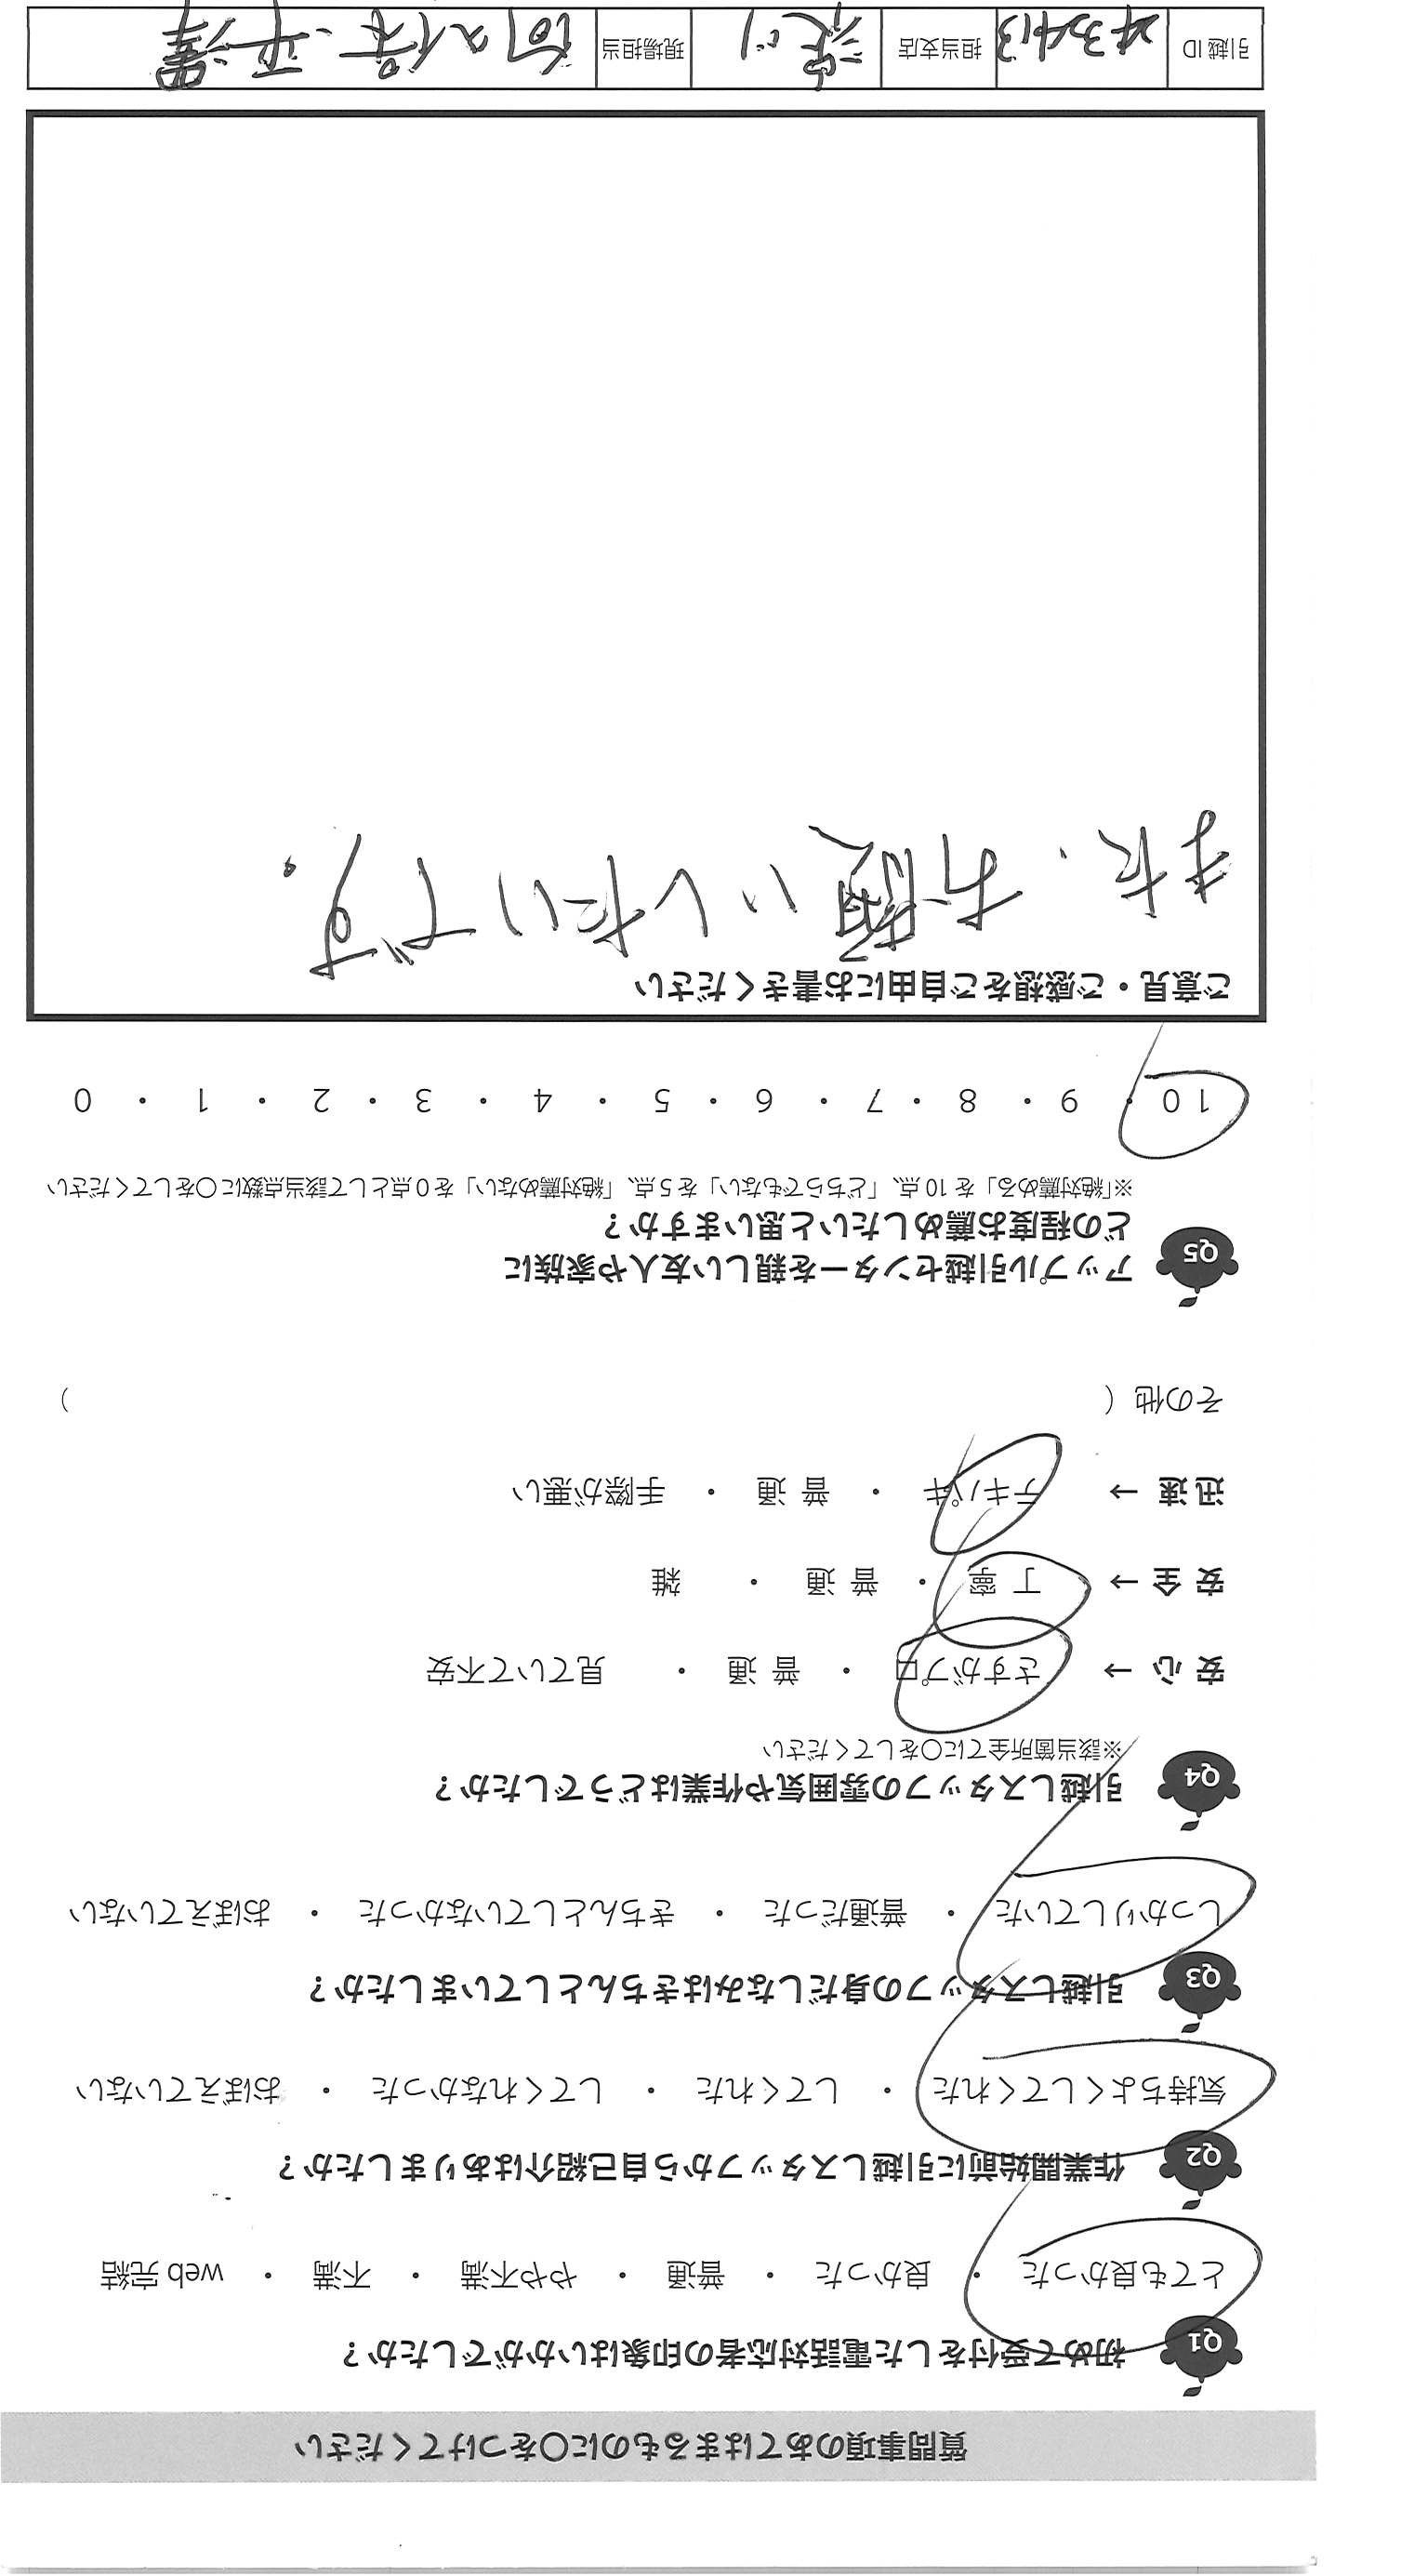 質問事項のあてはまるものに〇をつけてください
Q1 初めて受付をした電話対応者の印象はいかがでしたか？
とても良かった ・ 良かった ・ 普通 ・ やや不満 ・ 不満 ・ web 完結
Q2 作業開始前に引越しスタッフから自己紹介はありましたか？
気持ちよくしてくれた ・ してくれた ・ してくれなかった ・ おぼえていない
Q3 引越しスタッフの身だしなみはきちんとしていましたか？
しっかりしていた ・ 普通だった ・ きちんとしていなかった ・ おぼえていない
Q4 引越しスタッフの雰囲気や作業はどうでしたか？
※該当箇所全てに〇をしてください
安 心 → さすがプロ ・ 普 通 ・ 見ていて不安
安 全 → 丁 寧 ・ 普 通 ・ 雑
迅 速 → テキパキ ・ 普 通 ・ 手際が悪い
その他（ ）
Q5 アップル引越センターを親しい友人や家族に
どの程度お薦めしたいと思いますか？
※「絶対薦める」を 10 点、「どちらでもない」を 5 点、「絶対薦めない」を 0 点として該当点数に〇をしてください
10 ・ 9 ・ 8 ・ 7 ・ 6 ・ 5 ・ 4 ・ 3 ・ 2 ・ 1 ・ 0
ご意見・ご感想をご自由にお書きください
また、お願いしたいです。
引越 ID 担当支店 現場担当